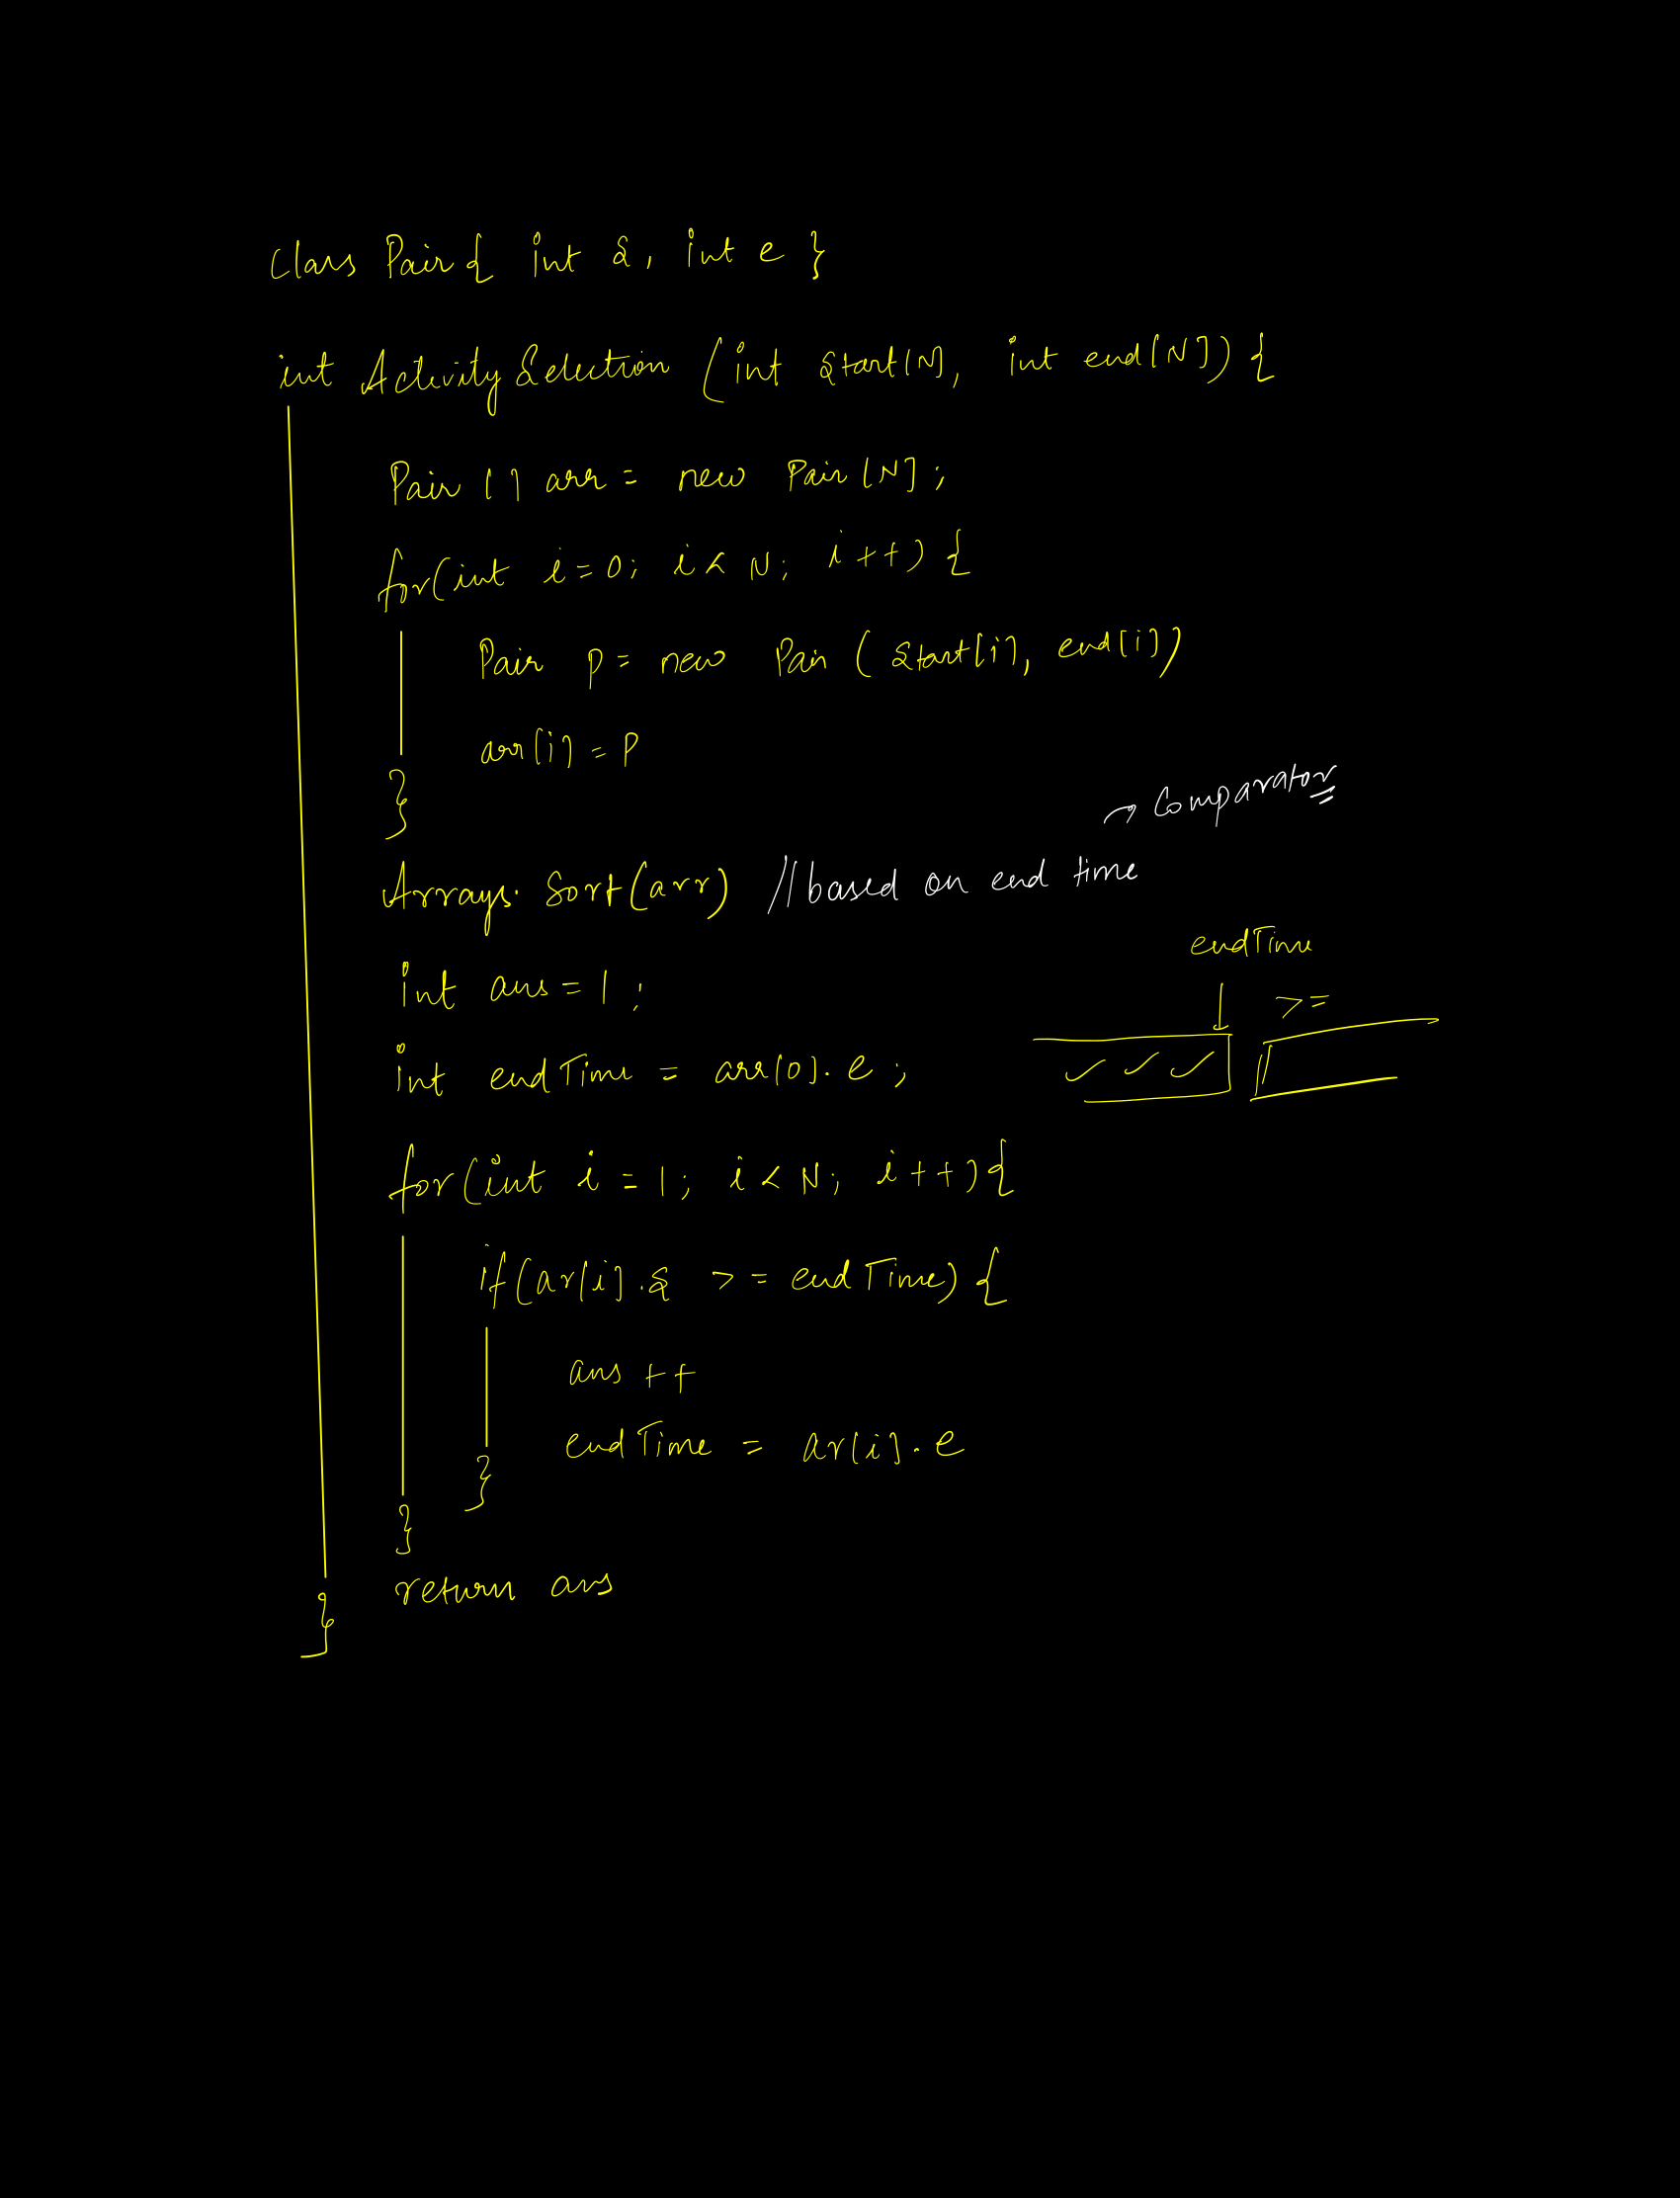 class Pair { int s, int e }
int ActivitySelection (int start[N], int end[N]) {
Pair [] arr = new Pair [N];
for(int i=0; i< N; i++) {
Pair p = new Pair ( start[i], end[i])
arr[i] = p
}
→ Comparator
Arrays. Sort(arr) //based on end time
endTime
int ans = 1 ;
>=
int endTime = arr[0]. e ;
for(int i = 1; i < N; i++){
if(ar[i].s >= endTime) {
ans ++
endTime = ar[i]. e
}
}
return ans
}